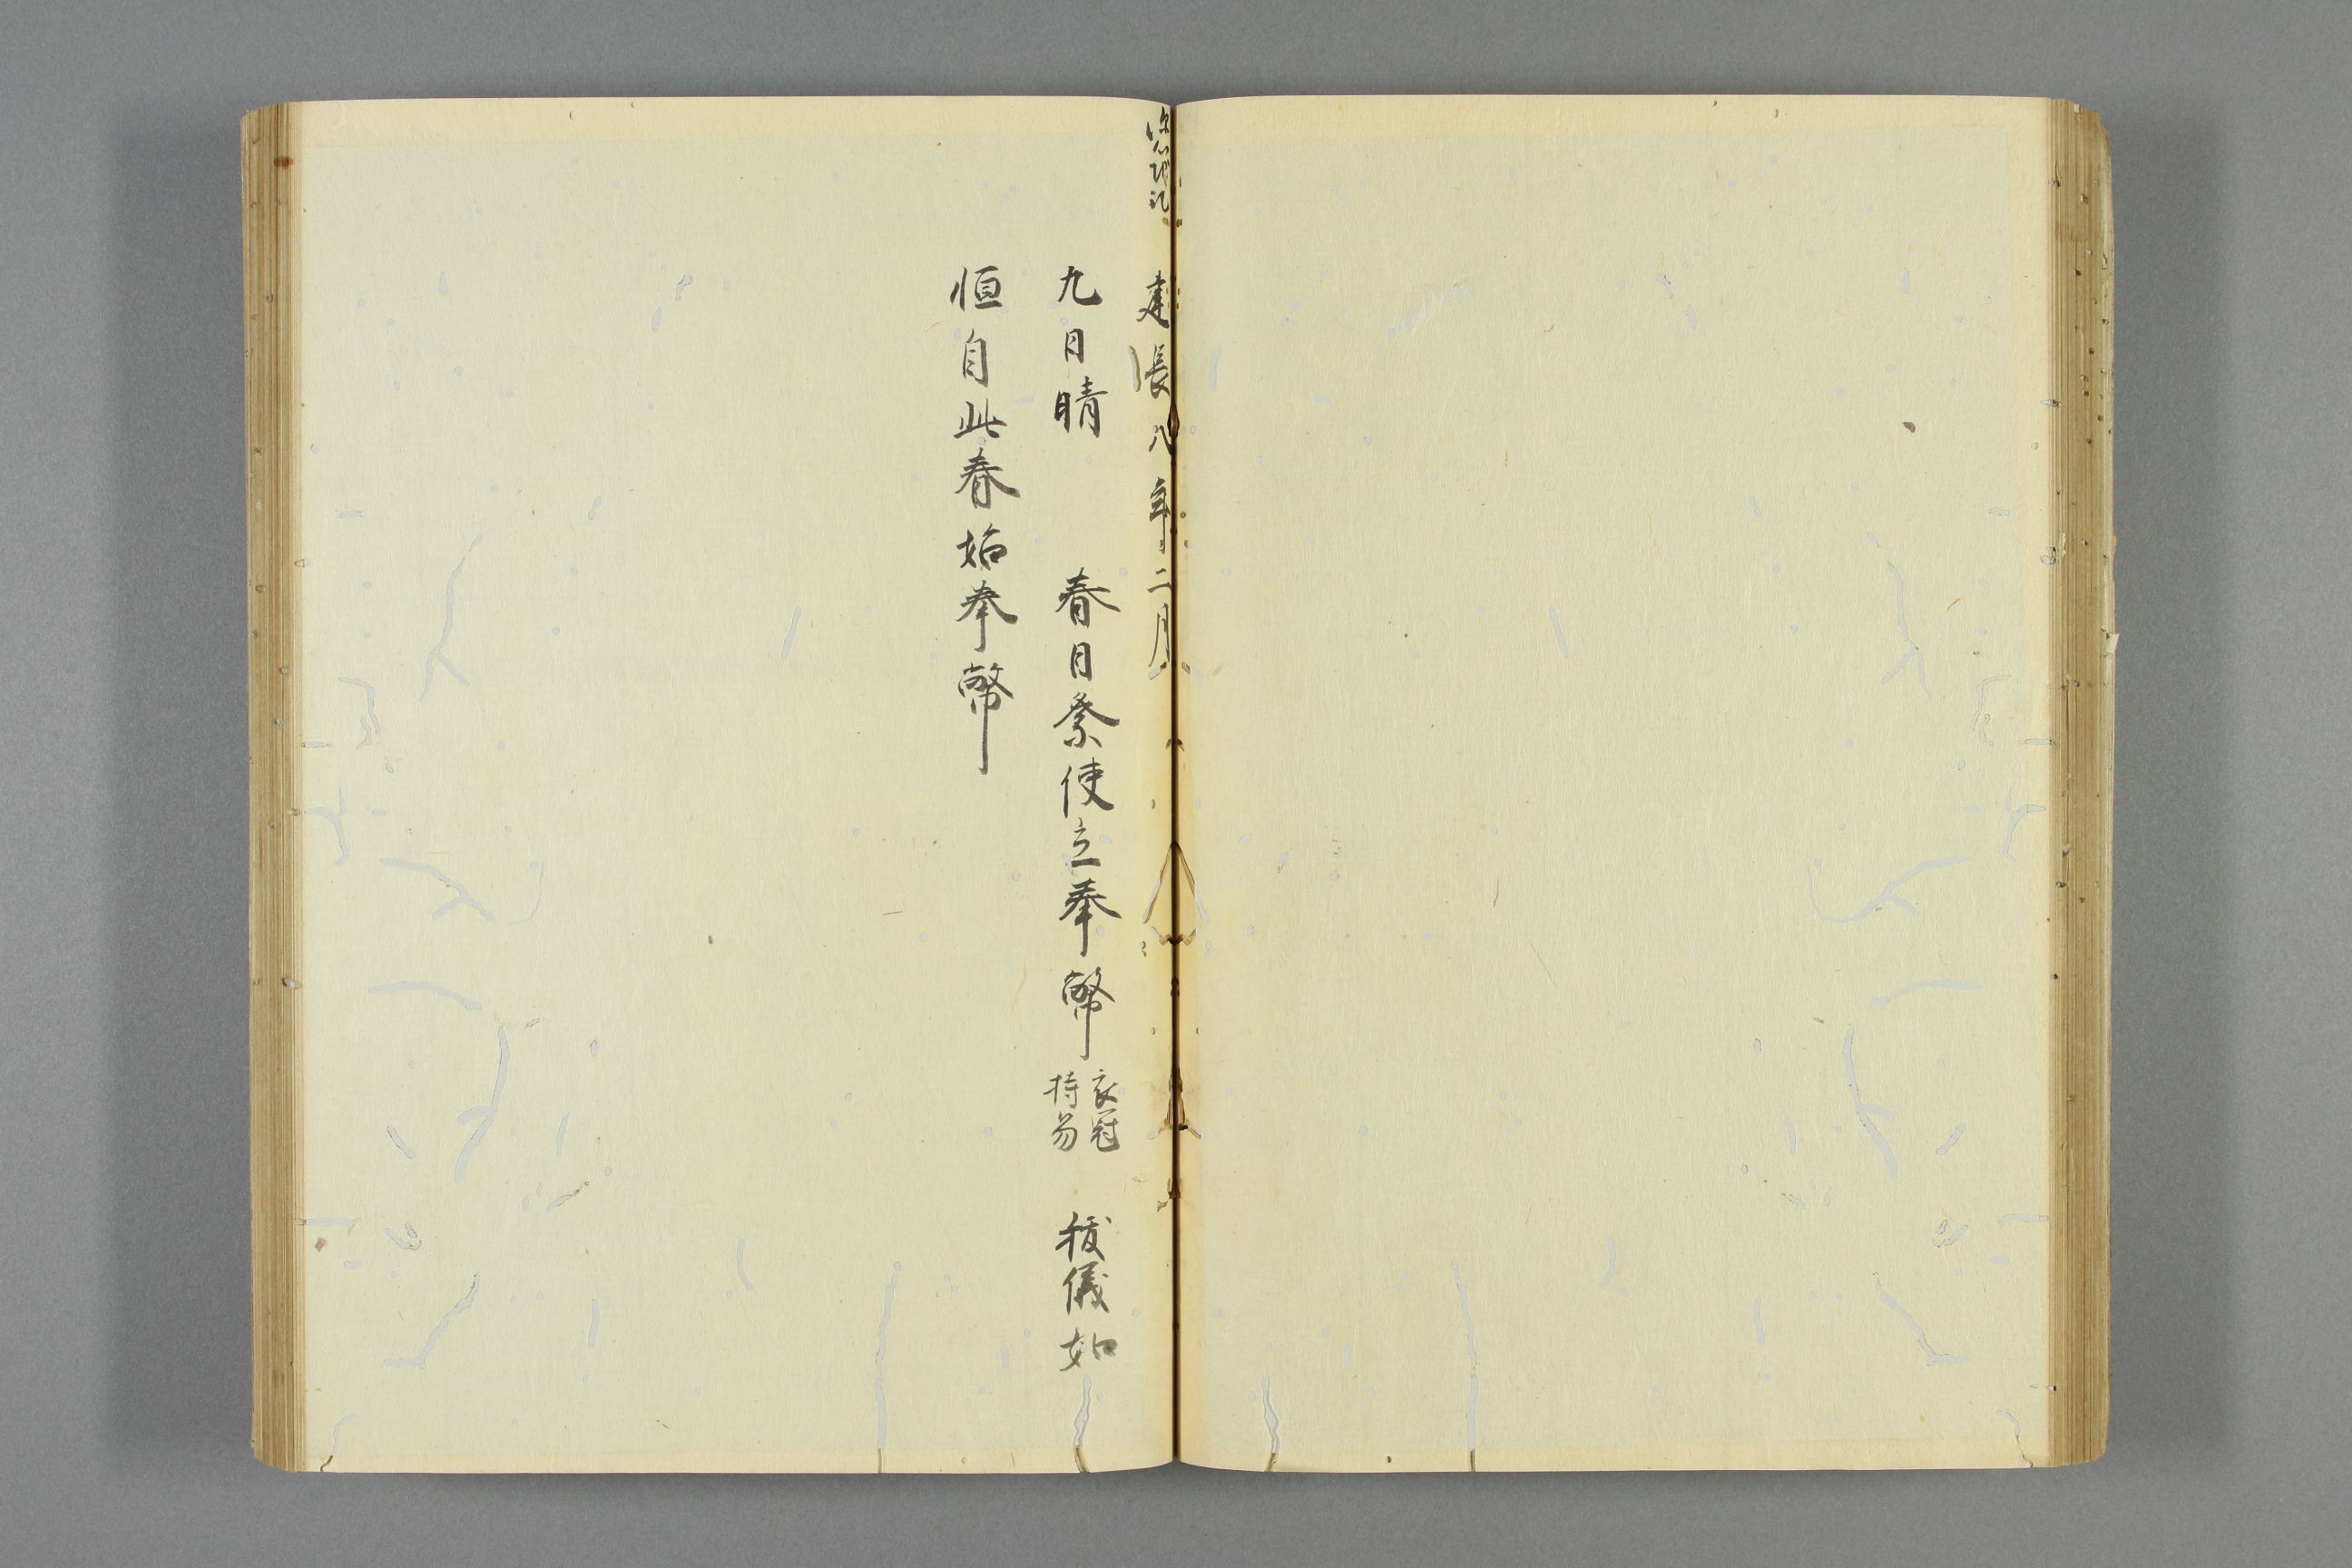 深心院記
建長八年二月
九日晴 春日祭使立奉幣 衣冠
持笏 祓儀如
恒自此春始奉幣